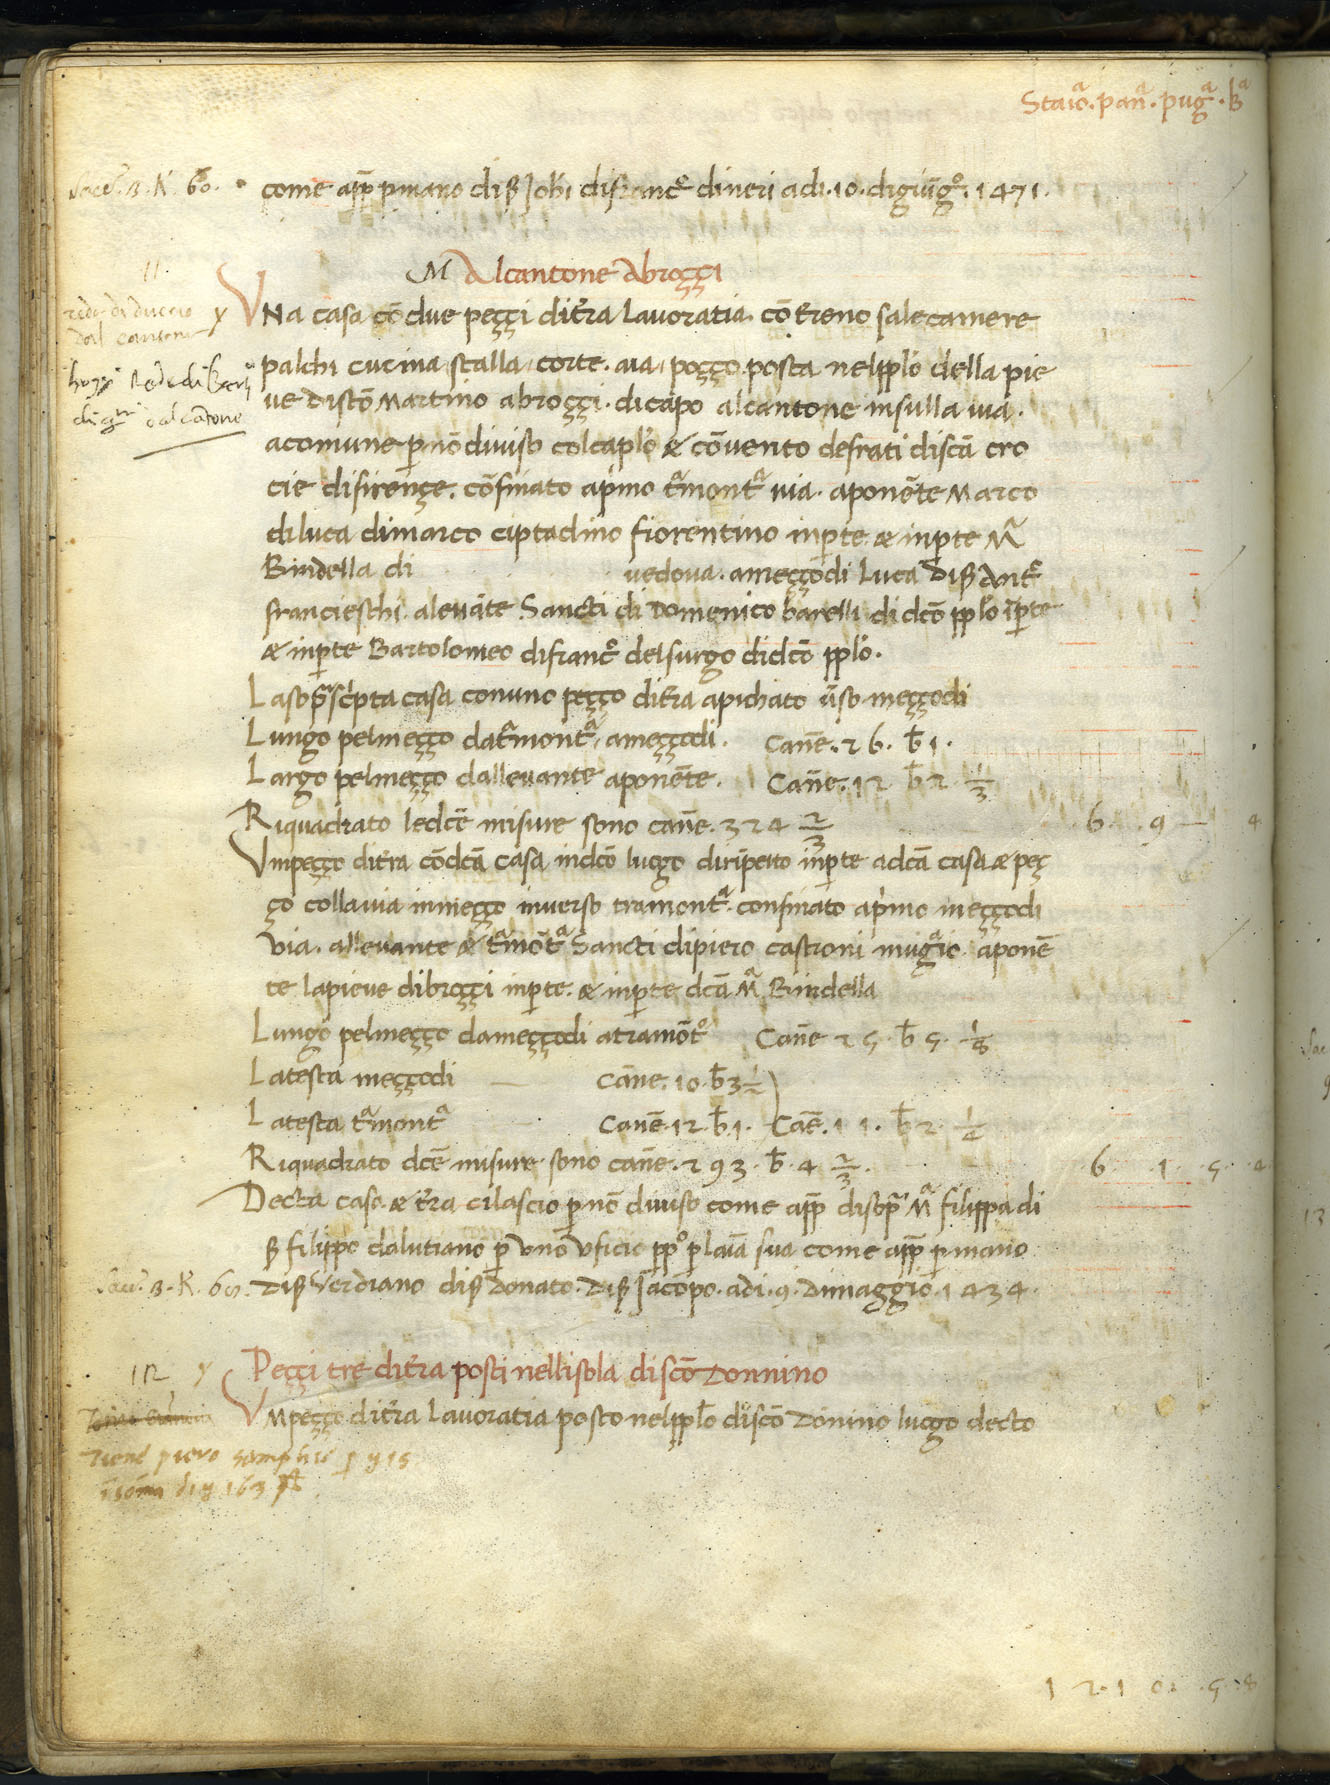 Staioᵃ. panᵃ. pugᵃ. bᵃ
Sacͣ. B. K. 60. come app̄ p mano di ß Joh̄i di francº di neri adi. 10. di giūgº. 1471.
M Alcantone Abroççi
11
rede di duccio dal cantone
y
VNa casa cō due peççi dit̄ra lauoratia. cō t̄reno sale camere
palchi cucina stalla, corte. aia, poççо. posta nel pplō della pie
hoggi Rede di Bartº
di gnⁱ dal cātone
ue discō Martino abroççi. dicapo alcantone insulla uia.
acomune p̱ nō diuiso col caplō & cōuento de frati discā cro
cie difirençe. cōfinato ap̄mo t̄montᵃ uia. aponēte Marco
diluca dimarco ciptadino fiorentino inp̱te & inp̱te Mᵃ
Bindella di vedoua. ameççodi Luca di ß Antº
francieschi. aleuāte Sancti di Domenico barelli di dcō pplō īp̱te
& inp̱te Bartolomeo difrancº delsurgo didcō pplō.
La sopᵃscⁱpta casa conuno peçço dit̄ra apichato ūso meççodi
Lungo pelmeçço dat̄montᵃ, ameççodi. Canē. 26. b̄ 1.
Largo pelmeçço dalleuante aponēte. Canē. 12 b̄ 2 1/3
Riquadrato ledcē misure sono canē. 324 2/3 6. 9 — 4
Vmpeçço dit̄ra cōdcā casa indcō luogo dirīpetto inp̱te adcā casa & peç
ço collauia inmeçço inuerso tramontᵃ. confinato ap̄mo meççodi
via. alleuante & t̄mōtᵃ Sancti dipiero castroni mugᵃio aponē
te lapieue dibroççi inp̱te. & inp̱te dcā Mᵃ Bindella
Lungo pelmeçço dameççodi atramōtº Canē 25. b̄ 5. 1/8
Latesta meççodi Cāne. 10. b̄ 3 1/2
Latesta t̄montᵃ Canē. 12. b̄. 1. Caē. 11. b̄ 2. 1/4
Riquadrato dcē misure sono canē. 293. b̄. 4 2/3. 6 1. 5. 4
Decta casa & t̄ra cilascio p̱ nō diuiso come app̄ disopᵃ Mᵃ filippa di
ß filippo dalutiano p̱ vnō vficio pp̱º p̱ laīa sua come app̄ p̱ mano
Sacͣ. B. K. 60. di ß Verdiano di ß Donato. di ß Jacopo. adi. 9. Dimaggio. 1434.
12 y
Peççi tre dit̄ra posti nellisola discō Donnino
Vmpeçço dit̄ra lauoratia posto nel pplō discō Donino luogo decto
Tiene piero
1 2. 1 0. 5. 8